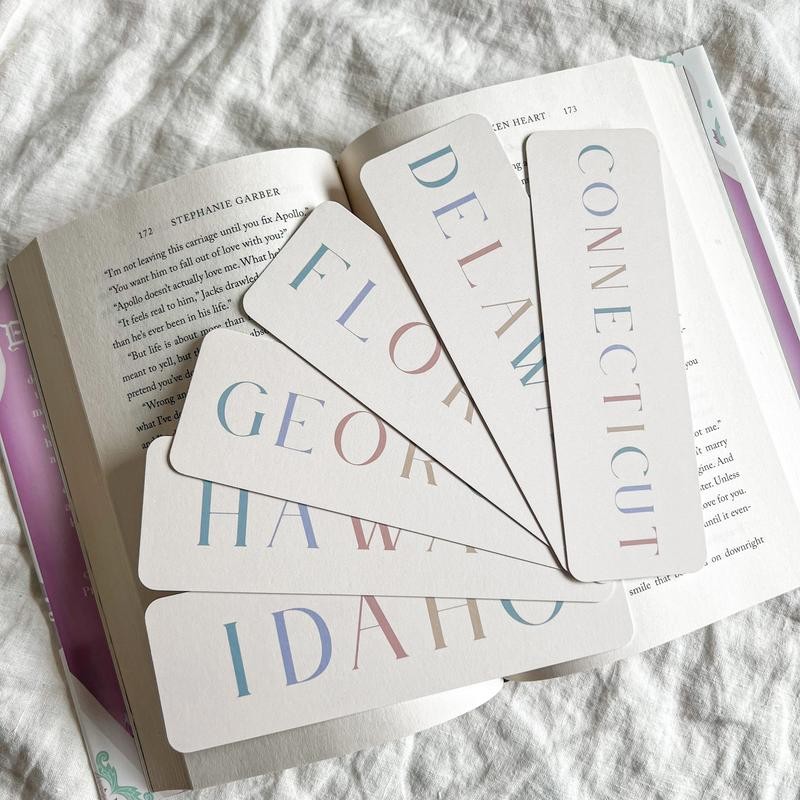 172 STEPHANIE GARBER
"I'm not leaving this carriage until you fix Apollo."
"You want him to fall out of love with you?"
"Apollo doesn't actually love me. What
"It feels real to him," Jacks drawled
than he's ever been in his life."
"But life is about more than
meant to yell, but
pretend you've
"Wrong
what I've
KEN HEART 173
ot me."
marry
gine. And
ster. Unless
love for you.
until it even-
smile that on downright
CONNECTICUT
DELAW
FLOR
GEOR
HAWA
IDAHO